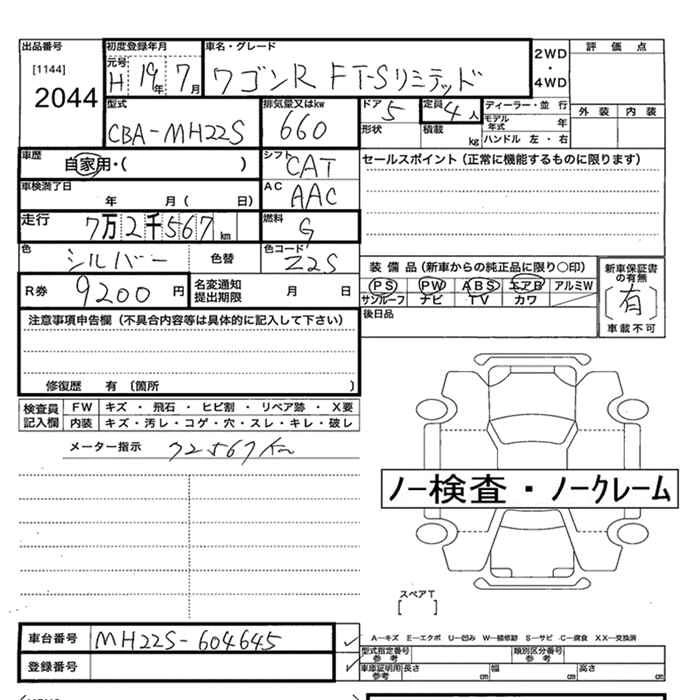 出品番号 初度登録年月 車名・グレード 評価点
[1144] 元号 H 19年 7月 ワゴンR FT-Sリミテッド 2WD・4WD
2044 型式 CBA-MH22S 排気量又はkw 660 ドア 5 定員 4人 ディーラー・並行 外装 内装
形状 積載 kg モデル年式 年 ハンドル 左・右
車歴 自家用・( ) シフト CAT セールスポイント(正常に機能するものに限ります)
車検満了日 年 月( 日) AC AAC
走行 7万2千567km 燃料 G
色 シルバー 色替 色コード Z2S 装備品(新車からの純正品に限り○印) 新車保証書の有無
R券 9200円 名変通知提出期限 月 日 PS PW ABS エアB アルミW (有)
サンルーフ ナビ TV カワ 車載不可
注意事項申告欄(不具合内容等は具体的に記入して下さい) 後日品
修復歴 有〔箇所 〕
検査員記入欄 FW キズ・飛石・ヒビ割・リペア跡・X要
内装 キズ・汚レ・コゲ・穴・スレ・キレ・破レ
メーター指示 72567Km
ノー検査・ノークレーム
スペアT
[ ]
車台番号 MH22S-604645 A―キズ E―エクボ U―凹み W―補修跡 S―サビ C―腐食 XX―交換済
登録番号 型式指定番号参考 類別区分番号参考
車庫証明用参考 長さ cm 幅 cm 高さ cm